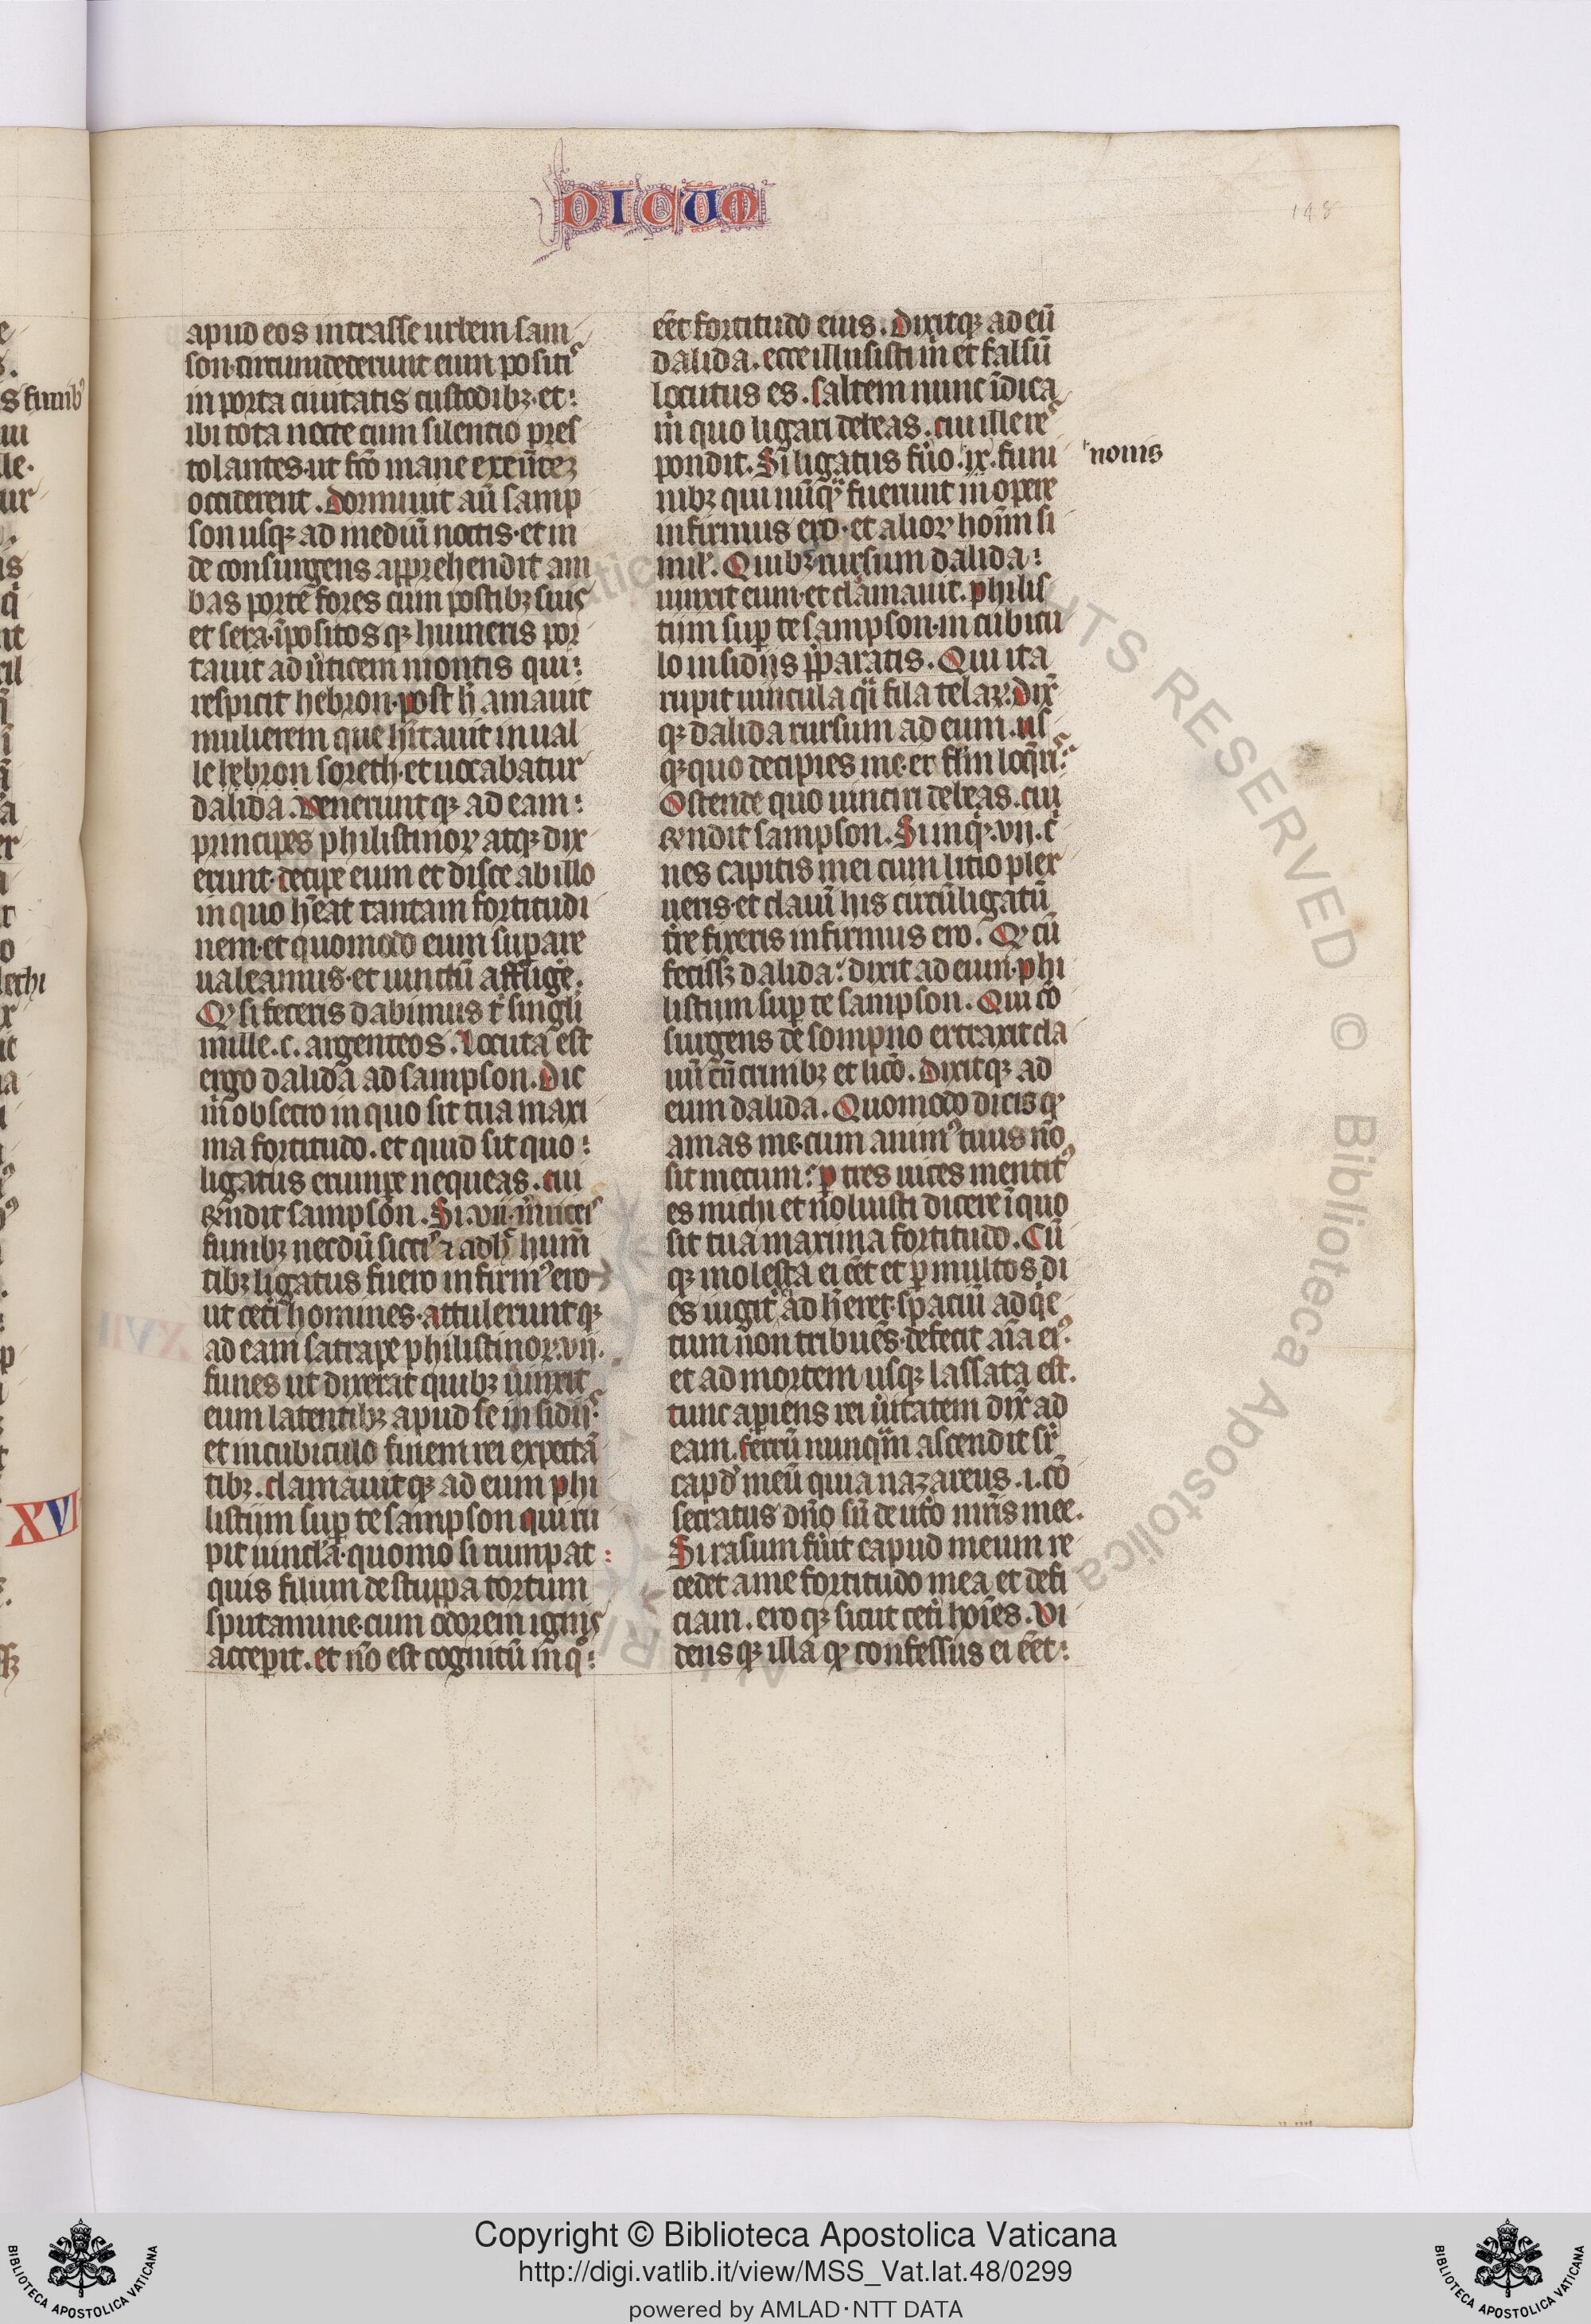 DICUM
148
apud eos intrasse urbem sam
son·circumdederunt eum positis
in porta ciuitatis custodibꝫ·et
ibi tota nocte cum silentio pres
tolantes·ut fc̄o mane exeūteꝫ
occiderent. Dormiuit aū samp
son usqꝫ ad mediū noctis·et in
de consurgens apprehendit am
bas porte fores cum postibꝫ suis
et sera·īpositos qꝫ humeris por
tauit ad u̍ticem montis qui
respicit hebron·post h̄ amauit
mulierem que hītauit in ual
le hebron soreth·et uocabatur
dalida. Venerunt qꝫ ad eam
principes philistinoꝝ atqꝫ dix
erunt·decipe eum et disce ab illo
in quo hēat tantam fortitudi
nem·et quomodo eum supare
ualeamus·et uinctū affligē.
Qꝫ si feceris dabimus t̍ singli
mille.c. argenteos. Locuta est
ergo dalida ad sampson. Dic
m̄ obsecro in quo sit tua maxi
ma fortitudo. et quid sit quo
ligatus erumpe nequeas. cui
rn̄dit sampson. Si.vii.n̄uiceis
funibꝫ necdū siccis ⁊ adhᶜ hum̄
tibꝫ ligatus fuero infirmꝰ ero
ut cet̍i homines·attulerunt qꝫ
ad eam satrape philistinoꝝ.vii.
funes ut dixerat quibꝫ uinxit
eum latentibꝫ apud se insidiis
et in cubiculo finem rei expectā
tibꝫ. clamauit qꝫ ad eum phi
listiim sup te sampson qui ru
pit uincl̄a·quomo si rumpat
quis filum de stuppa tortum
sputamine·cum odorem ignis
accepit. et nō est cognitū in qͦ
eēt fortitudo eius. Dixitqꝫ ad eū
dalida. ecce illusisti m̄ et falsū
locutus es. saltem nunc īdica
m̄ quo ligari debeas. cui ille res
pondit. Si ligatus fu̍o .ix. funi
nouis
nibꝫ qui nūqᵃ fuerunt in opere
infirmus ero·et alioꝝ hoīm si
mil̍. Quibꝫ rursum dalida
uinxit eum·et clamauit. philis
tiim sup te sampson·in cubicu
lo insidiis p̄paratis. Qui ita
rupit uincula qi̍ fila telaꝝ. Dix̄
qꝫ dalida rursum ad eum. us
qꝫ quo decipies me·et fl̄m loq̄ris
Ostende quo uinciri debeas. cui
rn̄dit sampson. Si inqͥꝫ.vii. c̍
nes capitis mei cum licio plex
ueris·et clauū his circūligatū
t̍re fixeris infirmus ero. Qꝫ cū
fecissꝫ dalida: dixit ad eum·phi
listiim sup te sampson. Qui cō
surgens de sompno extraxit cla
uū cū crinibꝫ et licō. Dixitqꝫ ad
eum dalida. Quomodo dicis qꝫ
amas me·cum animꝰ tuus nō
sit mecum: p tres uices mentitꝰ
es michi et noluisti dicere ī quo
sit tua maxima fortitudo. Cū
qꝫ molesta ei eēt et p multos di
es iugit̍ ad hēret·spaciū ad qͥe
tum non tribuēs·defecit aīa eiꝰ.
et ad mortem usqꝫ lassata est.
tunc apiens rei u̍itatem dix̄ ad
eam. ferrū nunqᵃm ascendit sr̄
capđ meū quia nazareus .i. cō
secratus dn̄o sū de ut̍o mr̄is mee.
Si rasum fu̍it capud meum re
cedet a me fortitudo mea et defi
ciam. ero qꝫ sicut cet̍i hoīes. Vi
dens qꝫ illa qꝫ confessus ei eēt
s funibꝰ
lechi
XVI
Copyright © Biblioteca Apostolica Vaticana
http://digi.vatlib.it/view/MSS_Vat.lat.48/0299
powered by AMLAD·NTT DATA
BIBLIOTECA APOSTOLICA VATICANA
BIBLIOTECA APOSTOLICA VATICANA